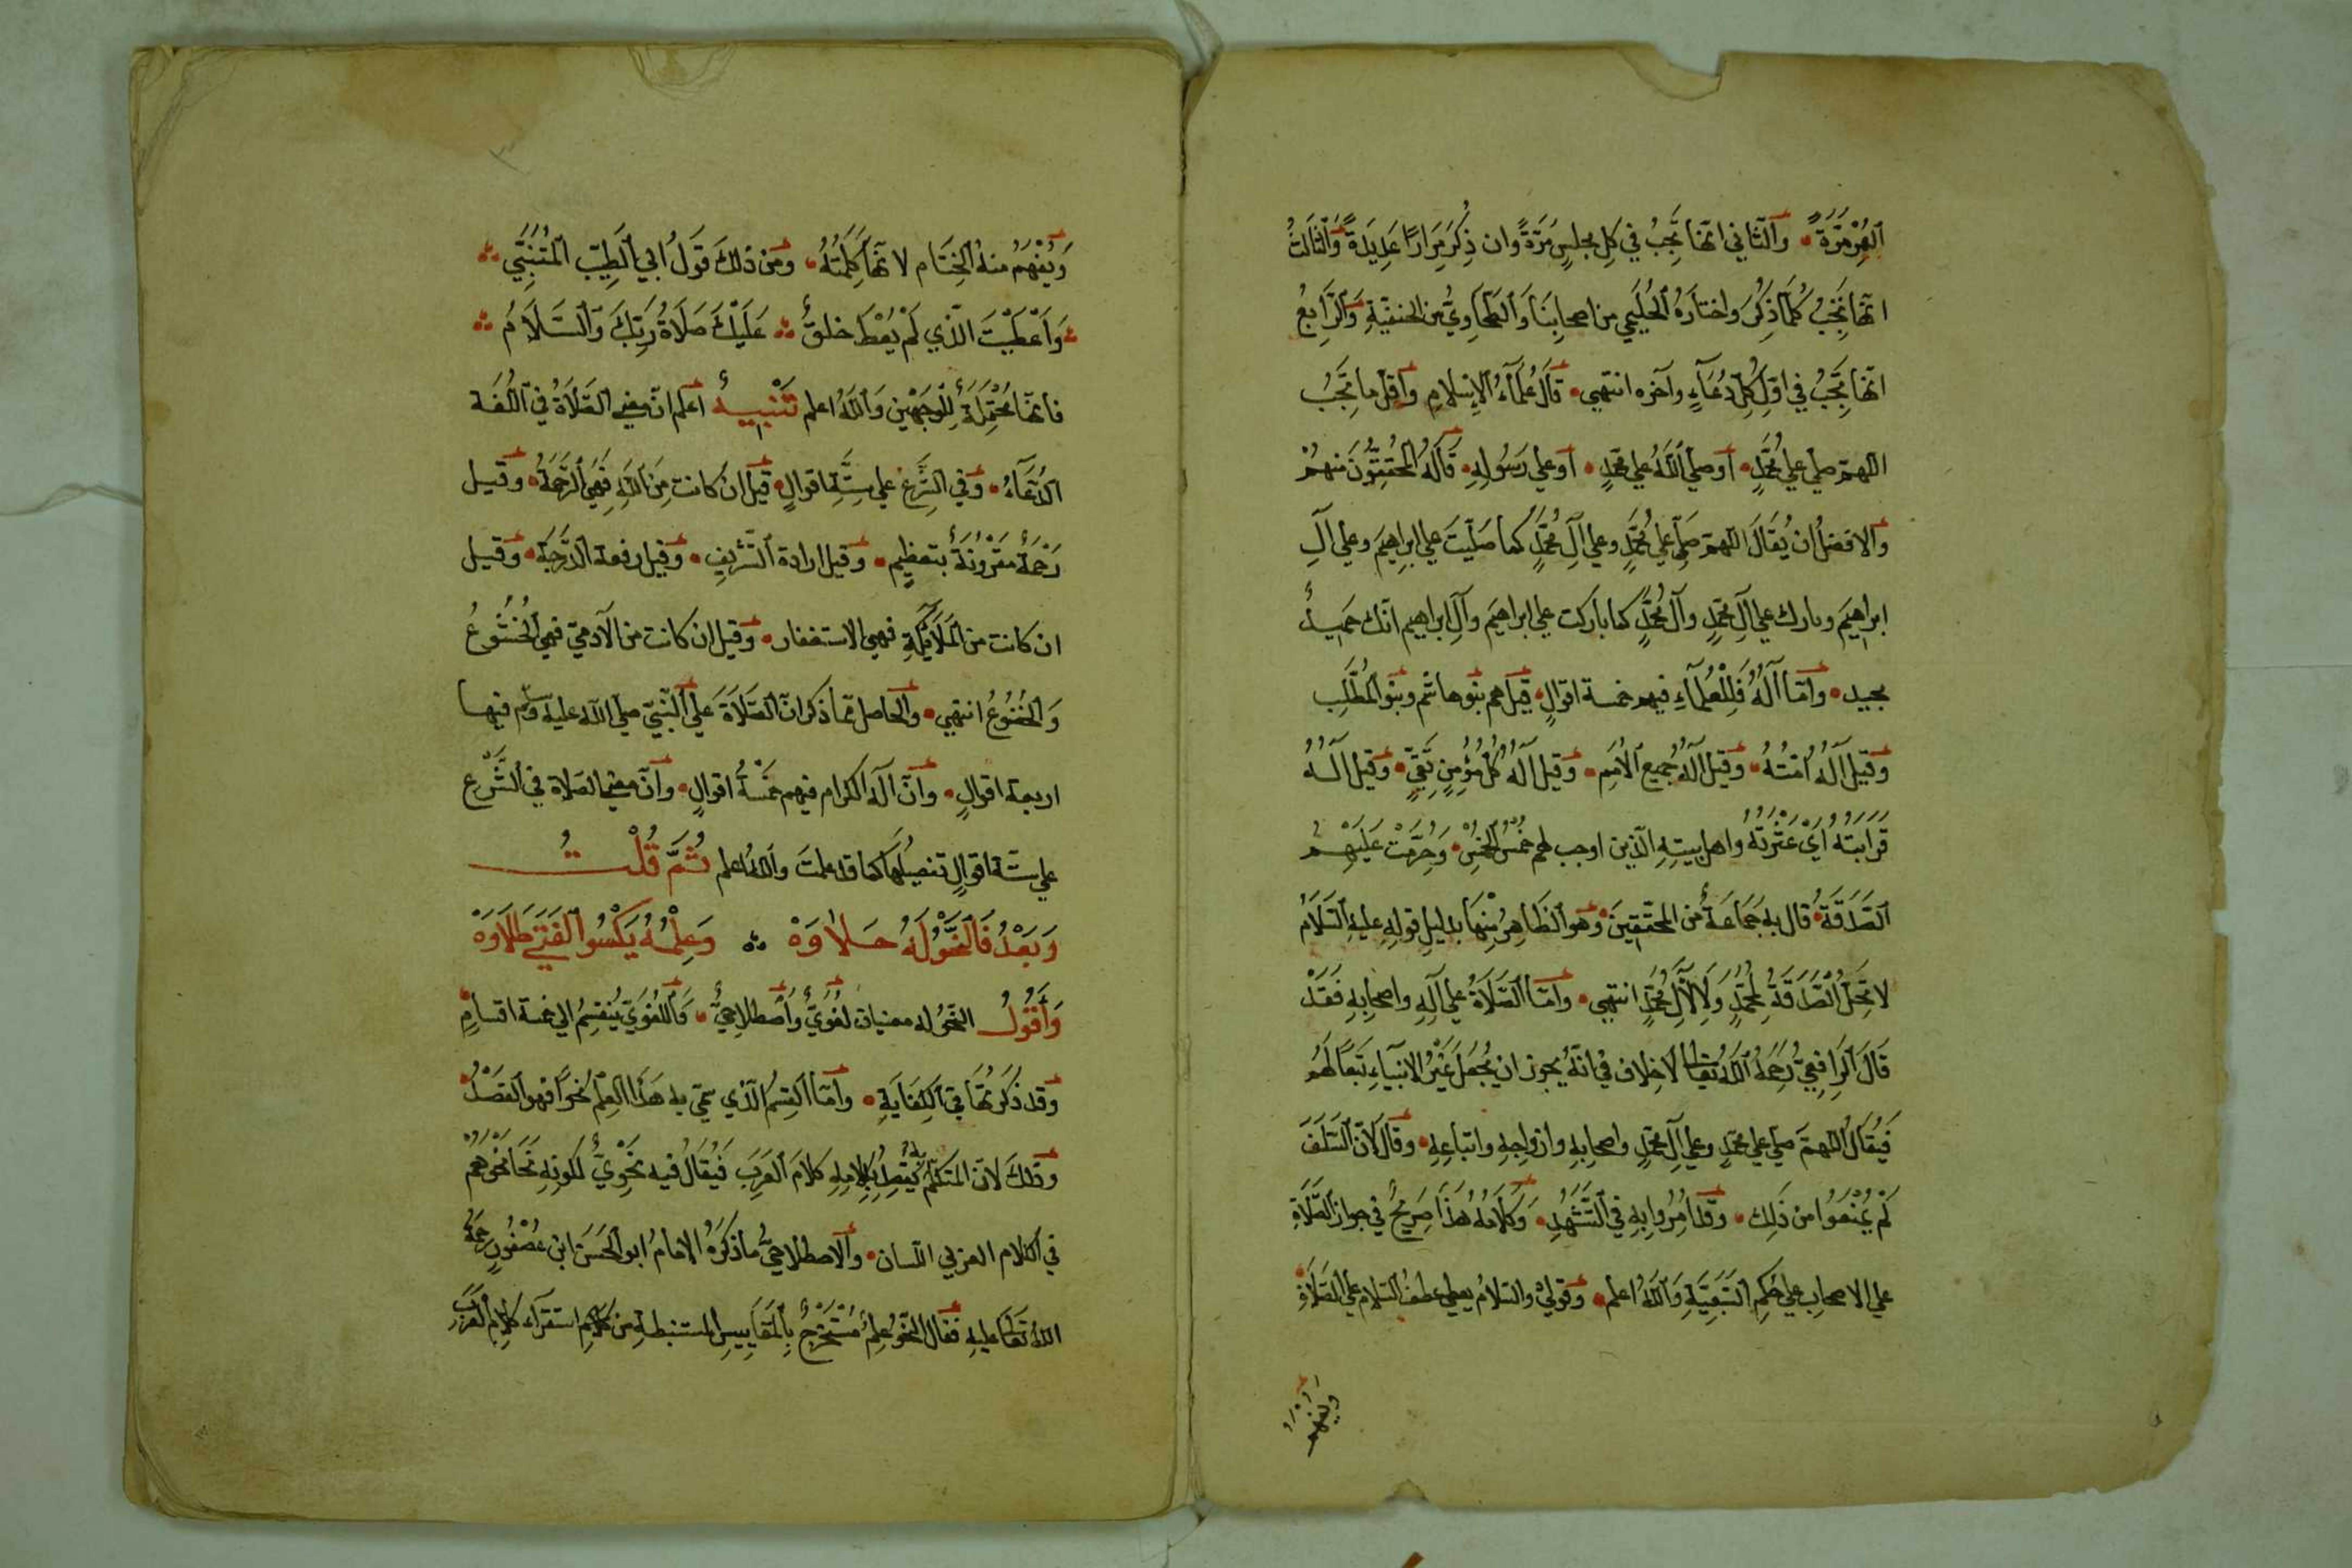 العُمْرِ مَرَّةً والثاني انها تَجِبُ في كل مجلسٍ مَرَّةً وان ذُكِرَ مِرَارًا عَدِيدَةً وَالثَالثُ
انها تَجِبُ كُلَّمَا ذُكِرَ واختارَهُ الحُلَيمِي من اصحابِنَا وَالطحاوِيُّ من الحنفيّةِ وَالرَّابِعُ
انها تَجِبُ في اوّلِ كُلِّ دُعَآءٍ وآخره انتهي قالَ عُلَمَآءُ الاسلامِ واقلّ ما تجبُ
اللهمّ صلي علي مُحَمَّدٍ أو صلّي اللهُ علي محمّدٍ أو علي رَسُولِهِ قَالَهُ المُحَقِّقُونَ منهُمْ
والافضلُ ان يُقَالَ اللهمّ صَلّي علي مُحَمَّدٍ وعلي آلِ مُحَمَّدٍ كما صَلّيتَ علي ابرهيمَ وعلي آلِ
ابراهيمَ وبارك علي آلِ محمّدٍ وآل مُحَمَّدٍ كما باركت علي ابراهيمَ وآلِ ابراهيم انّك حَميدٌ
مجيد وأمّا آلُهُ فَلِلْعُلَمَآءِ فيهم خمسة اقوالٍ قيل هم بنوهاشم وبنو المُطَّلِبِ
وقيل آلُهُ امّتُهُ وقيل آلُهُ جميع الأُمَمِ وقيل آلُهُ كُلُّ مُؤمِنٍ تَقِيٍّ وقيل آلُهُ
قَرابَتُهُ أيْ عَتْرَتُهُ واهل بيتِهِ الّذين اوجب لهم خُمُسُ الخُمُسِ وَحُرِّمَتْ عَلَيْهِمُ
الصَّدَقَةُ قال به جَمَاعَةٌ من المحقّقِينَ وهو الظَاهِرُ مِنْهَا بدليلِ قولِهِ عليهِ السَلَامُ
لا تَحِلُّ الصَّدَقَةُ لِمُحَمَّدٍ وَلا لِآلِ مُحَمَّدٍ انتهي وامّا الصَّلَاةُ علي آلِهِ واصحابِهِ فَقَدْ
قَالَ الرَافِعِيُّ رَحِمَهُ اللهُ تعالي لاخلاف في انّهُ يجوز ان يُجْعَلَ غَيْرُ الانبيآءِ تَبَعًا لَهُمْ
فَيُقَالُ اللهمّ صلي علي محمّدٍ وعلي آلِ محمّدٍ واصحابِهِ وازواجِهِ واتباعِهِ وقالَ لانّ السَّلَفَ
لَمْ يُمْنَعُوا من ذَلِكَ وقد أُمِرُوا بِهِ في التَّشَهُّدِ وَكَلامُهُ هَذَا صَرِيحٌ في جواز الصَّلَاةِ
علي الاصحابِ علي حُكمِ التَبَعِيَّةِ وَاللهُ اعلم وقولي والسّلامُ يعطي عطف السّلام علي الصَّلَاةِ
ويفهم
وَيُفْهَمُ منهُ الخِتَام لانّهَا كَلِمَتُهُ ومن ذلكَ قَوْلُ ابي الطَيِّبِ المُتَنَبِّي
وَاَعْطَيْتَ الّذي لَمْ يُعْطَ خلقٌ عَلَيْكَ صَلَاةُ رَبِّكَ وَالسَّلَامُ
فانّهَا مُحْتَمِلَةٌ لِلْوَجهَيْنِ وَاللهُ اعلم تَنْبِيهٌ اعلم انّ معني الصَّلَاةُ في اللُّغَة
الدُّعَآءُ وفي الشَّرْعِ علي سِتَّةِ اقوالٍ قيل ان كانت مِنَ اللهِ فَهِيَ الرَّحْمَةُ وقيل
رَحْمَةٌ مَقْرُونَةٌ بتعظيمٍ وقيل ارادة التَّشْرِيفِ وقيل رفعة الدَّرَجَةِ وقيل
ان كانت من المَلَآئِكَةِ فهي الاستغفار وقيل ان كانت من الآدميّ فهي الخُشُوعُ
وَالخُضُوعُ انتهي والحاصل ممّا ذكر انّ الصَّلَاةَ علي النَّبيّ صلي الله عليه وسلّم فيها
اربعة اقوالٍ وأنّ آلَهُ الكرام فيهم خَمْسَةُ اقوالٍ وأنّ معني الصلاة في الشَّرْعِ
علي ستّة اقوالٍ تفصيلُهَا كما قد علمتَ واللهُ اعلم ثُمَّ قُلْتُ
وَبَعْدُ فَالنَّحْوُ لَهُ حَلاوَهْ وَعِلْمُهُ يَكْسُو الفَتَي طَلَاوَهْ
وَأَقُولُ النّحوُ له معنيان لُغَوِيٌّ وأصطلاحيٌّ وَاللُّغَوِيّ يَنْقسِمُ الي خمسة اقسامٍ
وقد ذَكَرْتُهَا في الكِفَايَةِ وامّا القِسْمُ الّذي سمّي به هَذَا العِلْمُ نَحْوًا فهو القَصْدُ
وذلكَ لانّ المتكلّم يَقْصِدُ بِكلامِهِ كلامَ العَرَبِ فَيُقَالُ فيه نَحْوِيٌّ لكونِهِ نَحَا نَحْوَهُمْ
في الكلام العربي اللّسان والاصطلاحيُّ ما ذَكَرَهُ الامامُ ابو الحَسَن ابن عُصْفُورٍ رحمةُ
اللهِ تعالي عليهِ فقال النّحوُ عِلمٌ مُسْتَخْرَجٌ بِالمَقَايِيسِ المستنبطةِ من كلامِهِم استقرآء كلامِ العَرَبِ